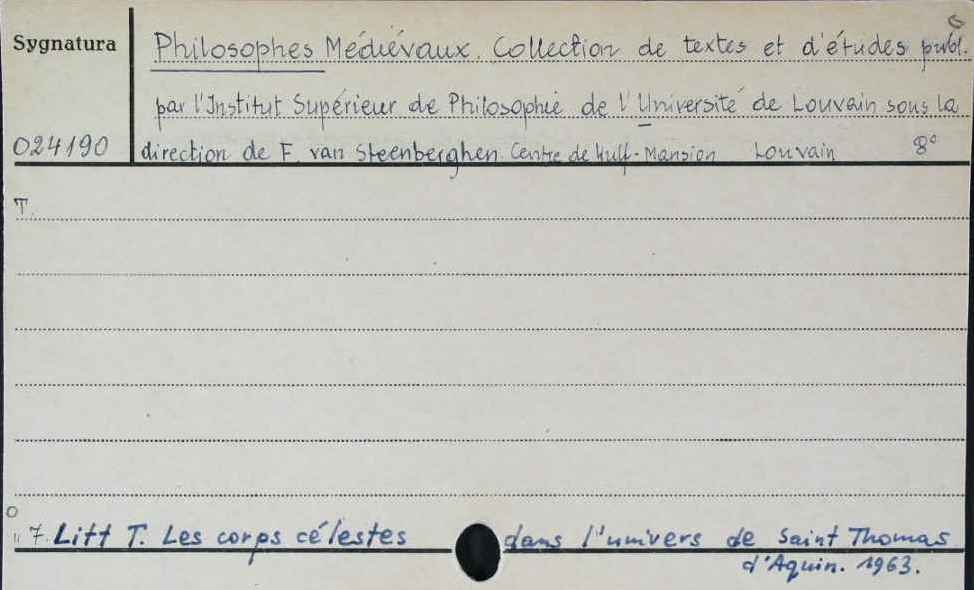 Sygnatura
Philosophes Médiévaux. Collection de textes et d'études publ.
par l'Institut Supérieur de Philosophie de l'Université de Louvain sous la
024190
direction de F. van Steenberghen. Centre de Wulf-Mansion Louvain 8°
T.
" 7. Litt T. Les corps célestes dans l'univers de Saint Thomas
d'Aquin. 1963.